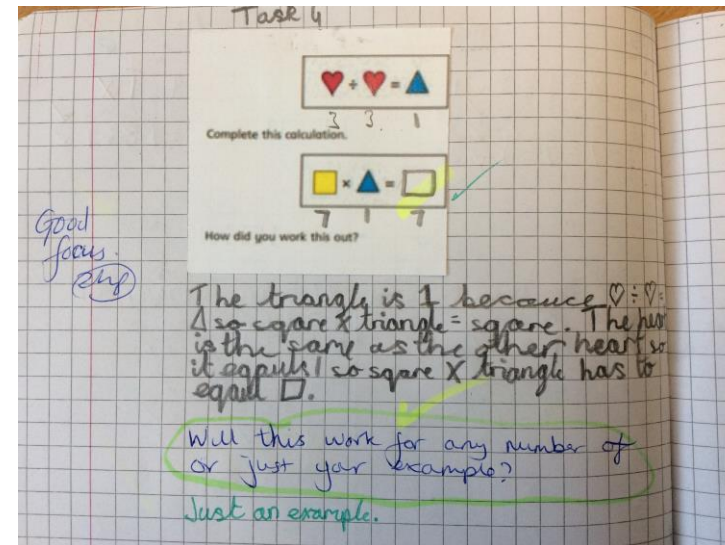 Task 4
♥ ÷ ♥ = ▲
3 3 1
Complete this calculation.
■ × ▲ = □
7 1 7
How did you work this out?
Good
focus.
The triangle is 1 becauce ♡ ÷ ♡ =
△ so sqare X triangle = sqare. The heart
is the same as the other heart so
it eqauls 1 so sqare X triangle has to
eqaul □.
Will this work for any number of
or just your example?
Just an example.